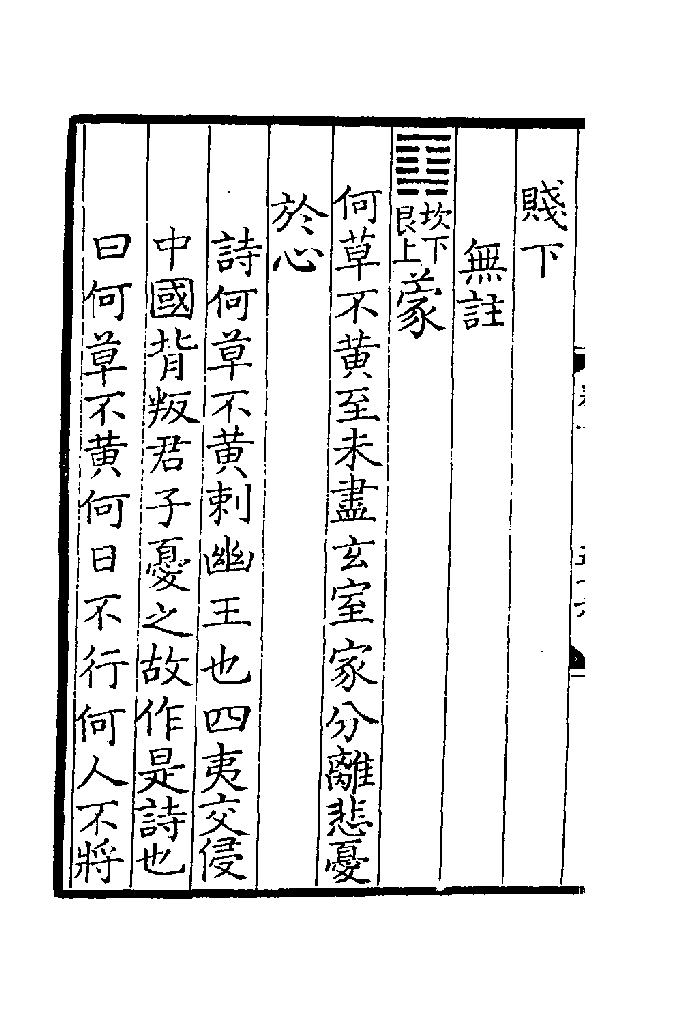 賤下
無註
坎下艮上蒙
何草不黄至未盡玄室家分離悲憂
於心
詩何草不黄刺幽王也四夷交侵
中國背叛君子憂之故作是詩也
曰何草不黄何日不行何人不將